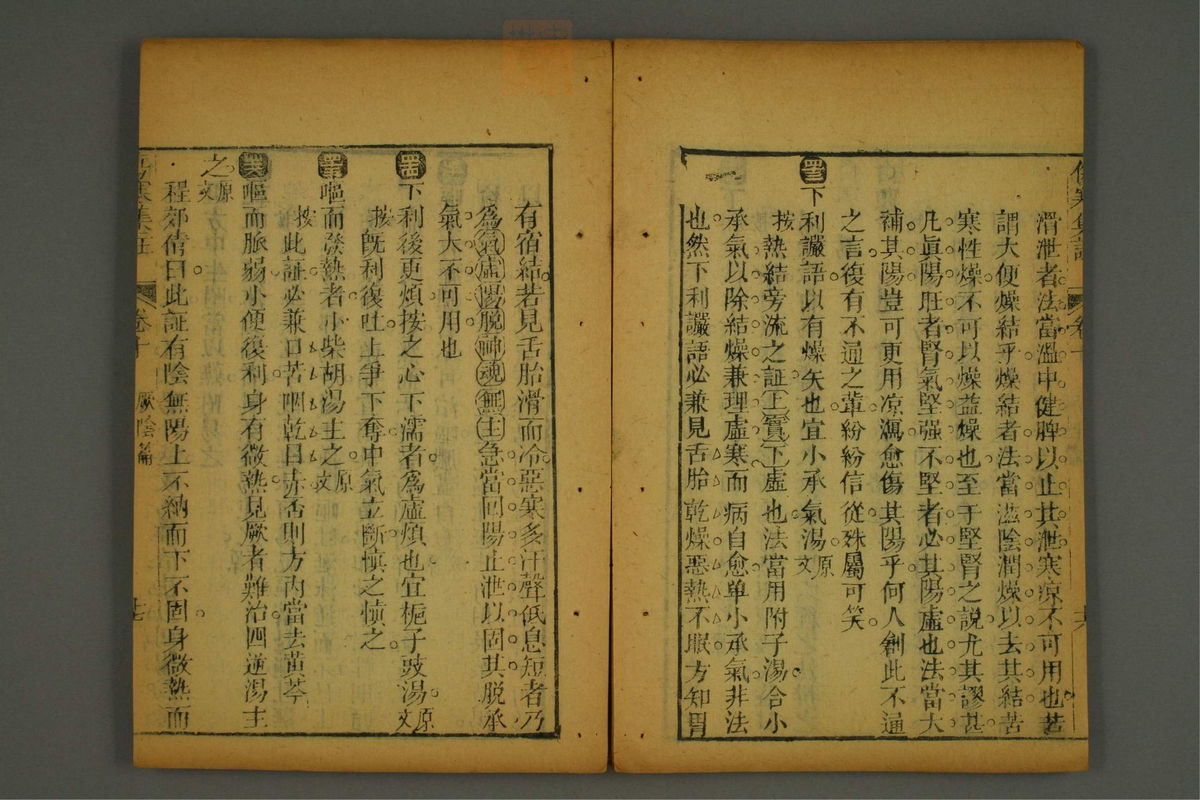 滑泄者法當溫中健脾以止其泄寒涼不可用也若
謂大便燥結乎燥結者法當滋陰潤燥以去其結苦
寒性燥不可以燥益燥也至于堅腎之說尤其謬甚
凡真陽旺者腎氣堅强不堅者必其陽虛也法當大
補其陽豈可更用凉瀉愈傷其陽乎何人創此不通
之言復有不通之輩紛紛信從殊屬可笑
下利讝語以有燥矢也宜小承氣湯原文
按熱結旁流之証上實下虛也法當用附子湯合小
承氣以除結燥兼理虛寒而病自愈單小承氣非法
也然下利讝語必兼見舌胎乾燥惡熱不眠方知胃
傷寒集註
卷十
有宿結若見舌胎滑而冷惡寒多汗聲低息短者乃
為氣虛陽脫神魂無主急當回陽止泄以固其脫承
氣大不可用也
下利後更煩按之心下濡者為虛煩也宜梔子豉湯原文
按既利復吐上爭下奪中氣立斷慎之慎之
嘔而發熱者小柴胡湯主之原文
按此証必兼口苦咽乾目赤否則方內當去黃芩
嘔而脈弱小便復利身有微熱見厥者難治四逆湯主
之原文
程郊倩曰此証有陰無陽上不納而下不固身微熱而
傷寒集註
卷十
厥陰篇